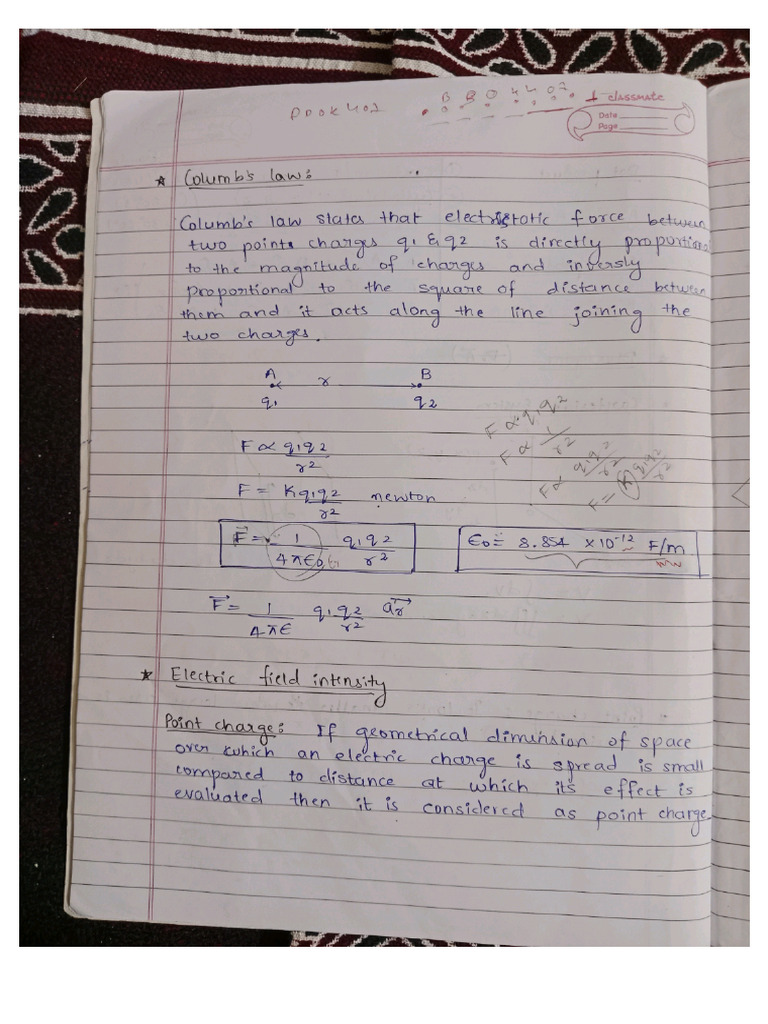 classmate
Date
Page
* Columb's law:
Columb's law states that electristotic force between
two points charges q1 & q2 is directly proportional
to the magnitude of charges and inversly
proportional to the square of distance between
them and it acts along the line joining the
two charges.
A r B
q1 q2
F ∝ q1q2
F ∝ 1/r2
F ∝ q1q2/r2
F = K q1q2/r2
F ∝ q1q2/r2
F = Kq1q2/r2 newton
F⃗ = 1/4πϵ0 q1q2/r2
ϵ0 = 8.854 ×10-12 F/m
F⃗ = 1/4πϵ q1q2/r2 ar⃗
* Electric field intensity
Point charge: If geometrical dimension of space
over which an electric charge is spread is small
compared to distance at which its effect is
evaluated then it is considered as point charge